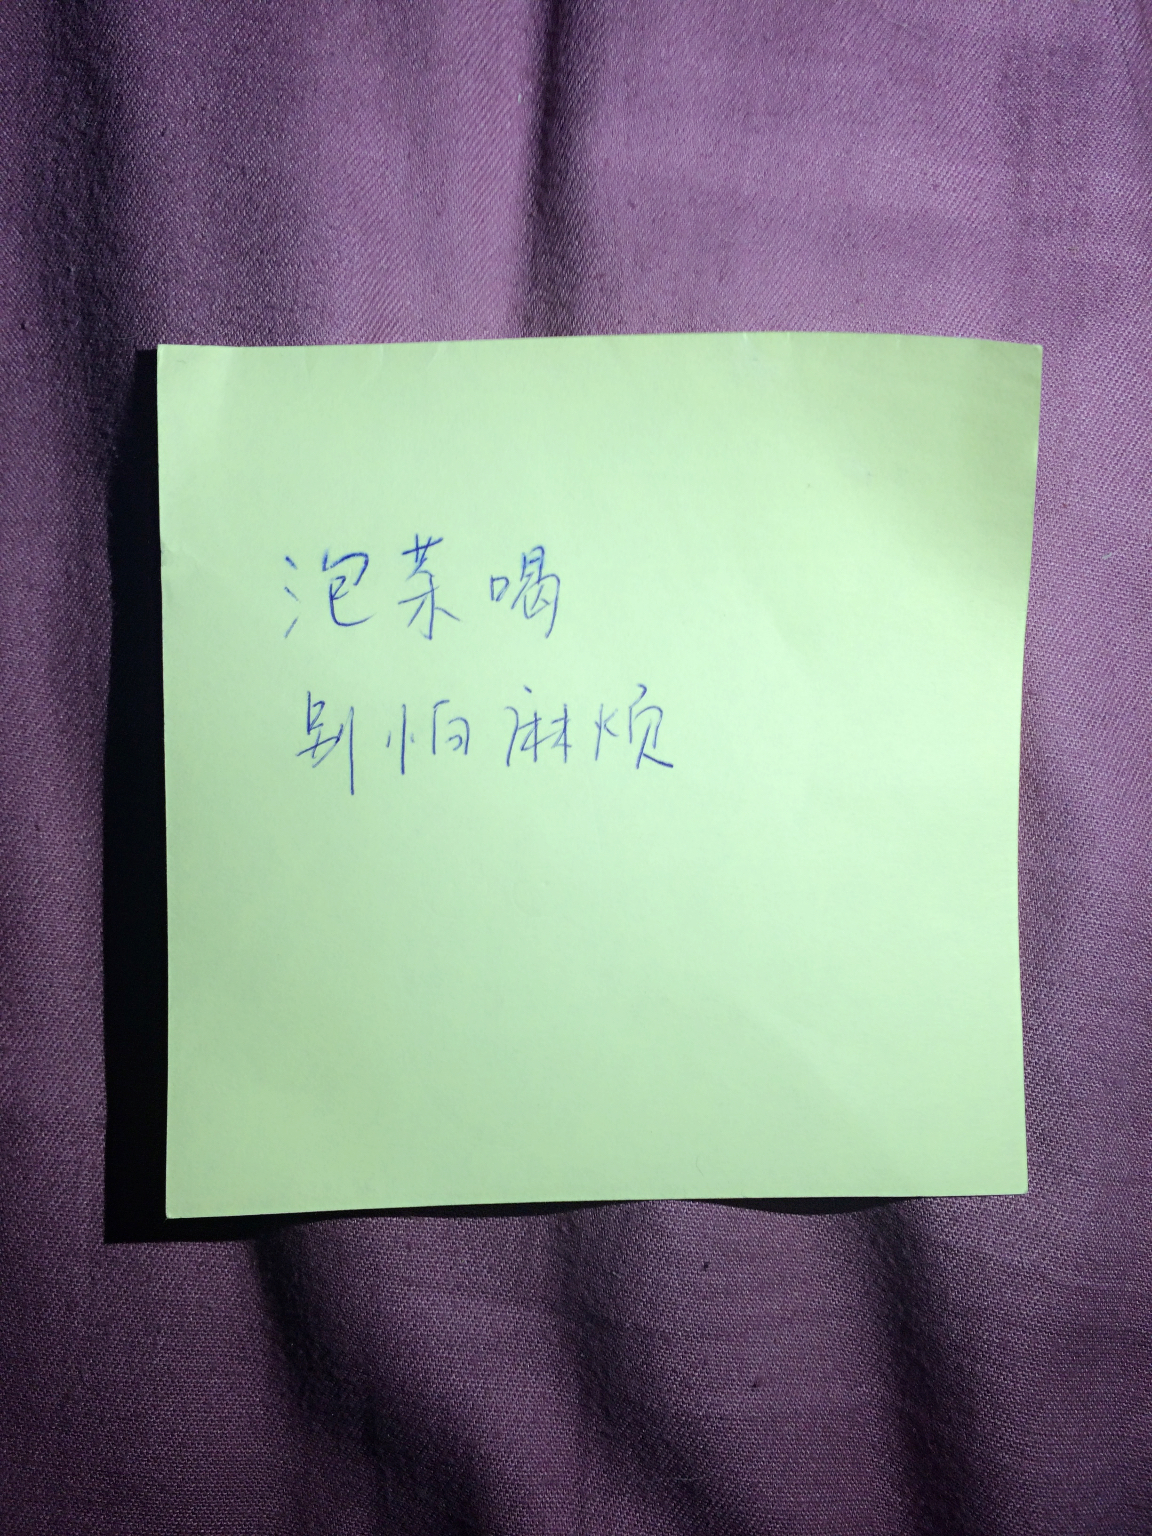 泡菜喝
别怕麻烦